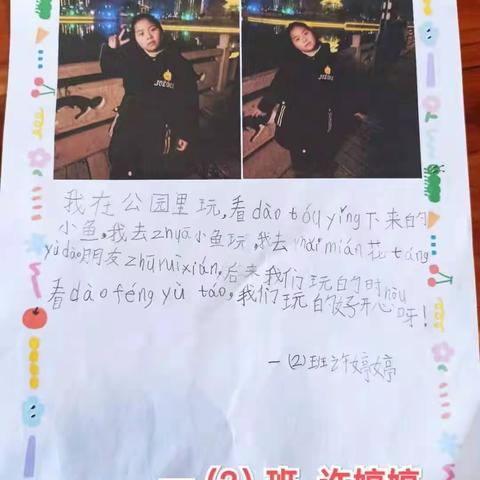 我在公园里玩,看dào tóu yǐng下来的
小鱼,我去zhuā小鱼玩,我去mǎi mián花táng
yù dào朋友zhū ruì xián,后来我们玩的时hòu
看dào féng yǔ táo,我们玩的好开心呀!
一(2)班许婷婷
一(2)班 许婷婷